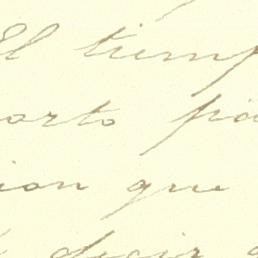 El tiemp
orto pa
ion que
decir